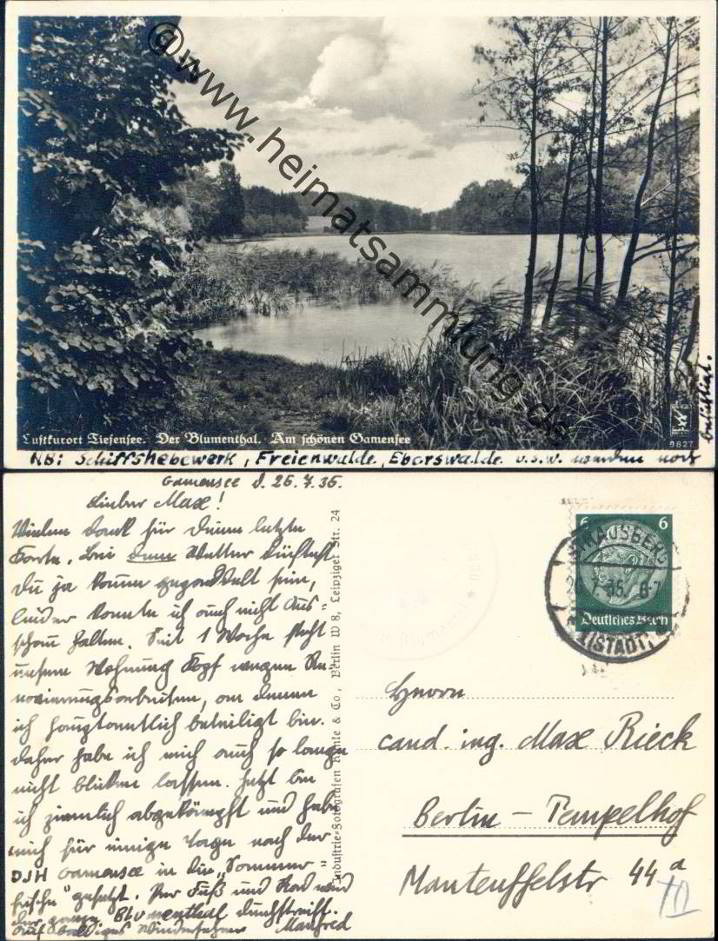 @www.heimatsammlung.de
Luftkurort Tiefensee. Der Blumenthal. Am schönen Gamensee
9827
NB: Schiffshebewerk, Freienwalde, Eberswalde u.s.w. werden noch
besichtigt.
Gamensee d. 26.7.36.
Lieber Max!
Vielen Dank für Deine letzte
Karte. Bei dem Wetter dürftest
Du ja kaum gegondelt sein,
leider konnte ich auch nicht Aus-
schau halten. Seit 1 Woche steht
unsere Wohnung Kopf wegen Re-
novierungsarbeiten, an denen
ich hauptamtlich beteiligt bin.
Daher habe ich mich auch so lange
nicht blicken lassen. Jetzt bin
ich ziemlich abgekämpft und habe
mich für einige Tage nach der
DJH Gamensee in die „Sommer-
frische" gesetzt. Per Fuß und Rad wird
der ganze Blumenthal durchstreift.
Auf baldiges Wiedersehen Manfred
Industrie-Fotografien Klinke & Co., Berlin W 8, Leipziger Str. 24
6 6
Deutsches Reich
STRAUSBERG
(STADT)
Herrn
cand. ing. Max Rieck
Berlin - Tempelhof
Manteuffelstr 44a
III